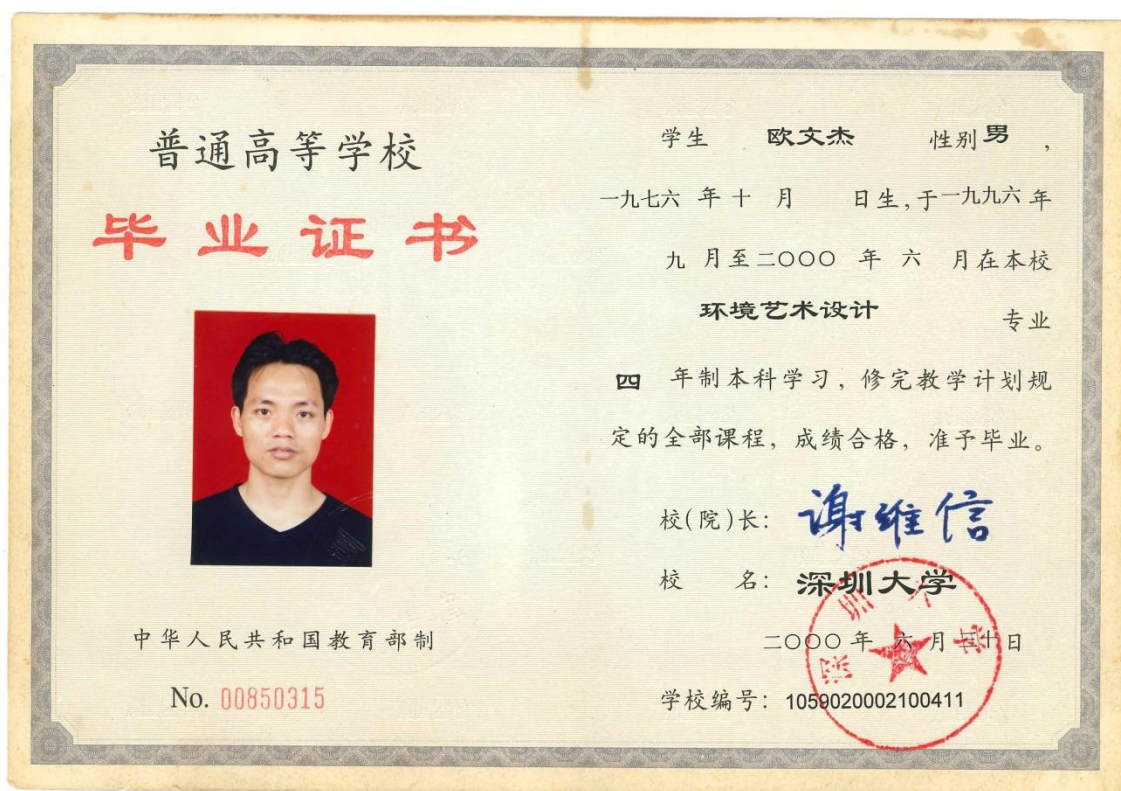 普通高等学校
毕业证书
中华人民共和国教育部制
No. 00850315
学生 欧文杰 性别 男 ，
一九七六 年 十 月 日生，于 一九九六 年
九 月至 二〇〇〇 年 六 月在本校
环境艺术设计 专业
四 年制本科学习，修完教学计划规
定的全部课程，成绩合格，准予毕业。
校(院)长： 谢维信
校 名： 深圳大学
二〇〇〇 年 六 月 三十 日
学校编号： 1059020002100411
深圳大学